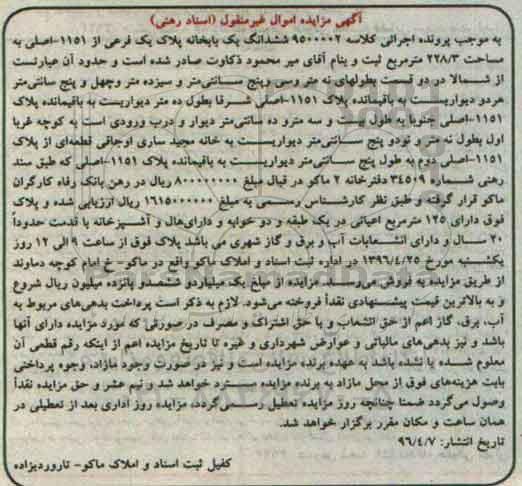 آگهی مزایده اموال غیرمنقول (اسناد رهنی)
به موجب پرونده اجرائی کلاسه ۹۵۰۰۰۰۲ ششدانگ یک بابخانه پلاک یک فرعی از ۱۱۵۱-اصلی به
مساحت ۲۲۸/۳ مترمربع ثبت و بنام آقای میر محمود ذکاوت صادر شده است و حدود آن عبارتست
از شمالا در دو قسمت بطولهای نه متر وسی وپنج سانتی‌متر و سیزده متر وچهل و پنج سانتی‌متر
هردو دیواریست به باقیمانده پلاک ۱۱۵۱-اصلی شرقا بطول ده متر دیواریست به باقیمانده پلاک
۱۱۵۱-اصلی جنوبا به طول بیست و سه مترو ده سانتی‌متر دیوار و درب ورودی است به کوچه غربا
اول بطول نه‌متر و نودو پنج سانتی‌متر دیواریست به خانه مجید ساری اوجاقی قطعه‌ای از پلاک
۱۱۵۱-اصلی دوم به طول پنج سانتی‌متر دیواریست به باقیمانده پلاک ۱۱۵۱-اصلی که طبق سند
رهنی شماره ۳۴۵۰۹ دفترخانه ۲ ماکو در قبال مبلغ ۸۰۰۰۰۰۰۰۰ ریال در رهن بانک رفاه کارگران
ماکو قرار گرفته و طبق نظر کارشناس رسمی به مبلغ ۱۶۱۵۰۰۰۰۰۰ ریال ارزیابی شده و پلاک
فوق دارای ۱۲۵ مترمربع اعیانی در یک طبقه و دو خوابه و دارای‌هال و آشپزخانه با قدمت حدوداً
۲۰ سال و دارای انشعابات آب و برق و گاز شهری می باشد پلاک فوق از ساعت ۹ الی ۱۲ روز
یکشنبه مورخ ۱۳۹۶/۴/۲۵ در اداره ثبت اسناد و املاک ماکو واقع در ماکو- خ امام کوچه دماوند
از طریق مزایده به فروش می‌رسد. مزایده از مبلغ یک میلیاردو ششصدو پانزده میلیون ریال شروع
و به بالاترین قیمت پیشنهادی نقداً فروخته می‌شود. لازم به ذکر است پرداخت بدهی‌های مربوط به
آب، برق، گاز اعم از حق انشعاب و یا حق اشتراک و مصرف در صورتی که مورد مزایده دارای آنها
باشد و نیز بدهی‌های مالیاتی و عوارض شهرداری و غیره تا تاریخ مزایده اعم از اینکه رقم قطعی آن
معلوم شده یا نشده باشد به عهده برنده مزایده است و نیز در صورت وجود مازاد، وجوه پرداختی
بابت هزینه‌های فوق از محل مازاد به برنده مزایده مسترد خواهد شد و نیم عشر و حق مزایده نقداً
وصول می‌گردد ضمنا چنانچه روز مزایده تعطیل رسمی‌گردد، مزایده روز اداری بعد از تعطیلی در
همان ساعت و مکان مقرر برگزار خواهد شد.
تاریخ انتشار: ۹۶/۴/۷
کفیل ثبت اسناد و املاک ماکو- تاروردیزاده